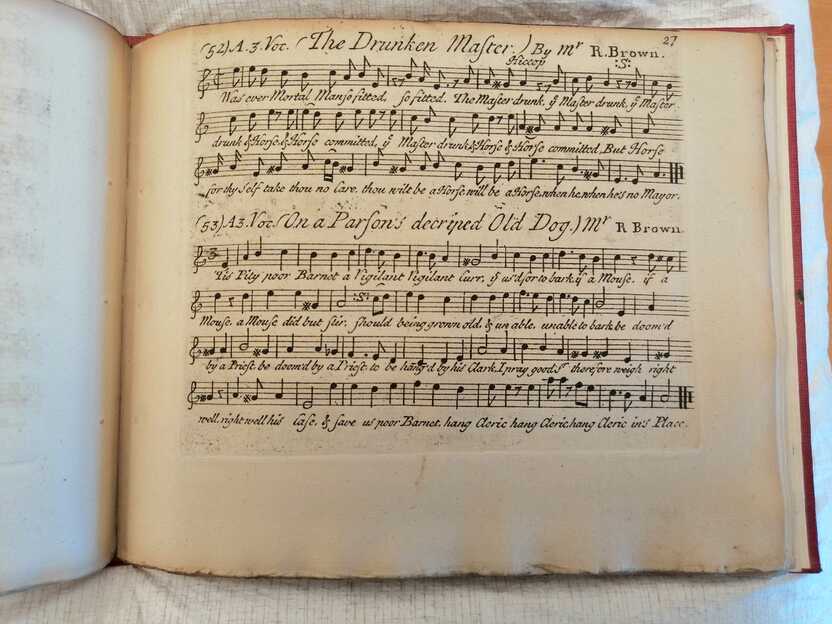 27
(52) A. 3. Voc. (The Drunken Maſter.) By Mr R. Brown.
Hiccop :S:
Was ever Mortal Man so fitted, so fitted. The Maſter drunk, ye Maſter drunk, ye Maſter
drunk & Horſe, & Horſe committed, ye Maſter drunk & Horſe & Horſe committed, But Horſe
for thy ſelf take thou no Care, thou wilt be a Horſe, will be a Horſe, when he, when he's no Mayor.
(53) A 3. Voc. (On a Parſon's decriped Old Dog.) Mr R Brown.
'Tis Pity poor Barnet a Vigilant Vigilant Curr, yt us'd for to bark, if a Mouſe, if a
:S:
Mouſe, a Mouſe did but ſtir, ſhould being grown old, & unable, unable to bark, be doom'd
by a Prieſt, be doom'd by a Prieſt, to be hang'd by his Clark, I pray good Sr therefore weigh right
well, right well his Caſe, & ſave us poor Barnet, hang Cleric hang Cleric, hang Cleric in's Place.